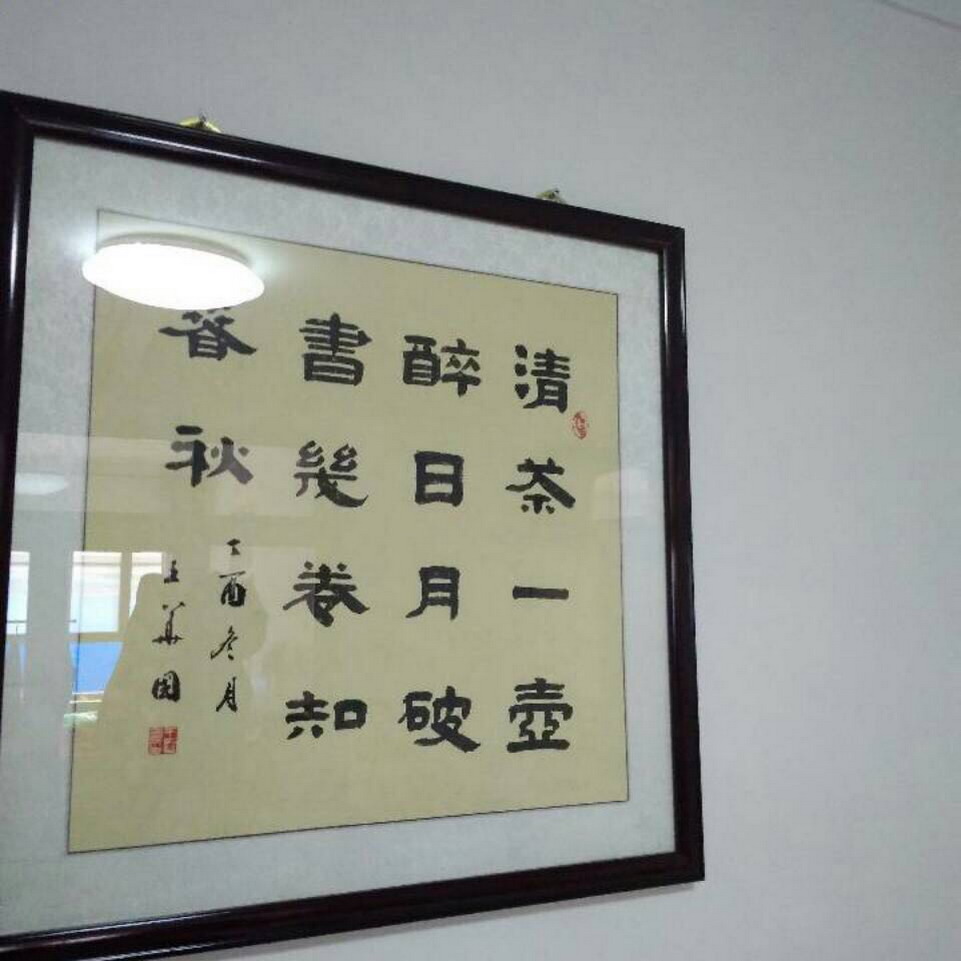 清茶一壺
醉日月破
書幾卷知
春秋
丁酉冬月
王華國